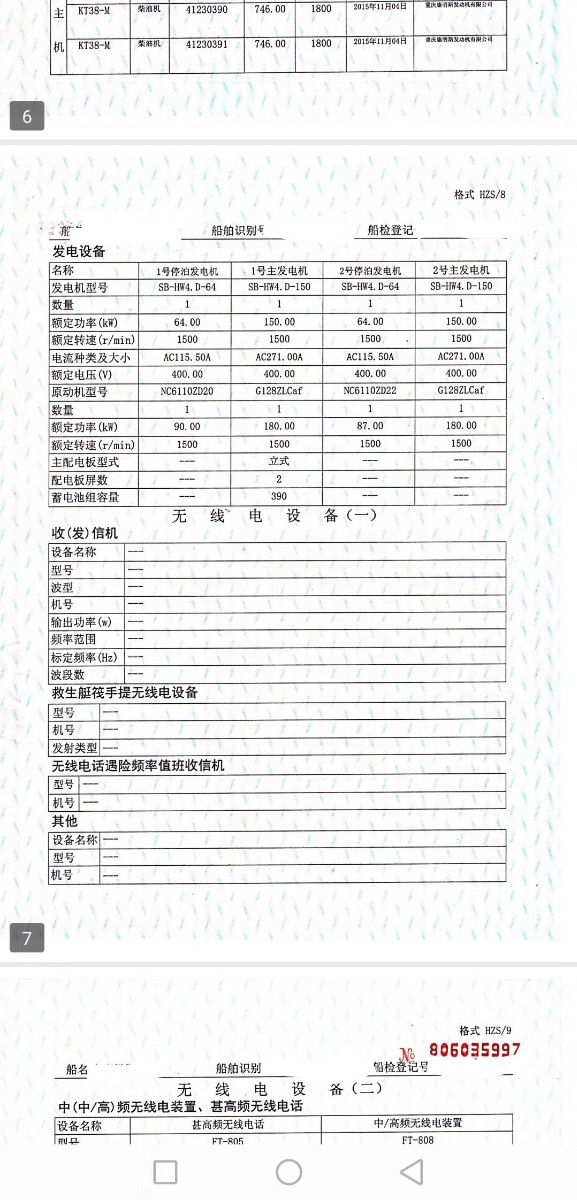 主 KT38-M 柴油机 41230390 746.00 1800 2015年11月04日 重庆康明斯发动机有限公司
机 KT38-M 柴油机 41230391 746.00 1800 2015年11月04日 重庆康明斯发动机有限公司
6
格式 HZS/8
船 船舶识别号 船检登记
发电设备
名称 1号停泊发电机 1号主发电机 2号停泊发电机 2号主发电机
发电机型号 SB-HW4.D-64 SB-HW4.D-150 SB-HW4.D-64 SB-HW4.D-150
数量 1 1 1 1
额定功率(kW) 64.00 150.00 64.00 150.00
额定转速(r/min) 1500 1500 1500 1500
电流种类及大小 AC115.50A AC271.00A AC115.50A AC271.00A
额定电压(V) 400.00 400.00 400.00 400.00
原动机型号 NC6110ZD20 G128ZLCaf NC6110ZD22 G128ZLCaf
数量 1 1 1 1
额定功率(kW) 90.00 180.00 87.00 180.00
额定转速(r/min) 1500 1500 1500 1500
主配电板型式 --- 立式 --- ---
配电板屏数 --- 2 --- ---
蓄电池组容量 --- 390 --- ---
无线电设备(一)
收(发)信机
设备名称 ---
型号 ---
波型 ---
机号 ---
输出功率(w) ---
频率范围 ---
标定频率(Hz) ---
波段数 ---
救生艇筏手提无线电设备
型号 ---
机号 ---
发射类型 ---
无线电话遇险频率值班收信机
型号 ---
机号 ---
其他
设备名称 ---
型号 ---
机号 ---
7
格式 HZS/9
№ 806035997
船名 船舶识别 船检登记号
无线电设备(二)
中(中/高)频无线电装置、甚高频无线电话
设备名称 甚高频无线电话 中/高频无线电装置
型号 FT-805 FT-808